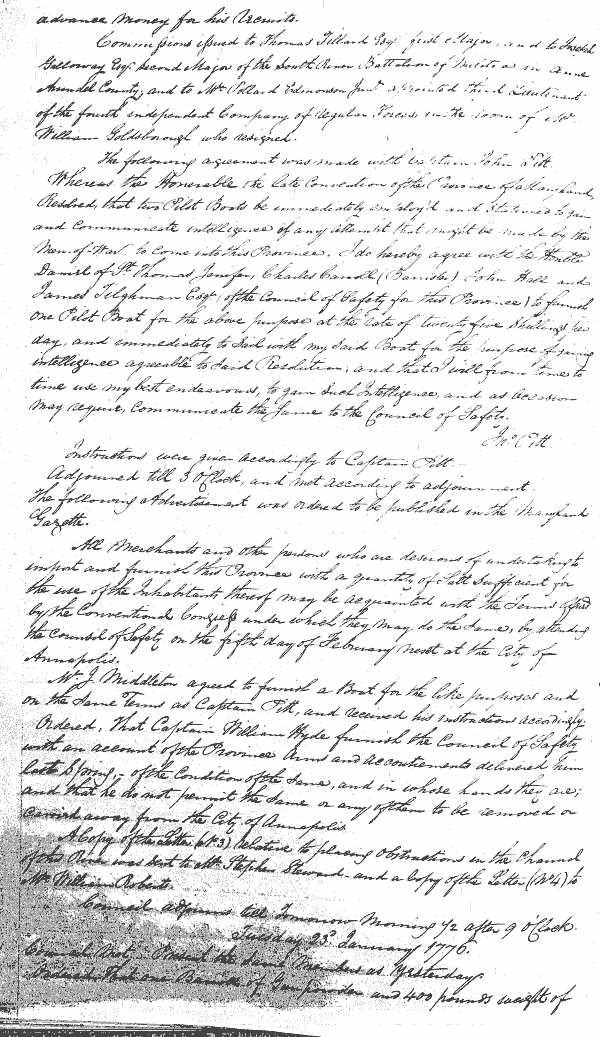 advance money for his Recruits.
Commissions issued to Thomas Tillard Esqr first Major, and to Joseph
Galloway Esqr second Major of the South River Battalion of Militia in Anne
Arundel County, and to Mr Pollard Edmonson Junr appointed third Lieutenant
of the fourth independent Company of regular Forces in the room of Mr
William Goldsborough who resigned.
The following agreement was made with Captain John Pitt.
Whereas the Honorable the late Convention of the Province of Maryland,
Resolved, that two Pilot Boats be immediately employ'd and stationed to gain
and communicate intelligence of any attempt that might be made by the
Men of War, to come into this Province. I do hereby agree with the Honble
Daniel of St. Thomas Jenifer, Charles Carroll (Barrister) John Hall and
James Tilghman Esqrs (of the Council of Safety for this Province) to furnish
one Pilot Boat for the above purpose at the rate of twenty five Shillings per
day, and immediately to Sail with my Said Boat for the purpose of gaining
intelligence agreeable to Said Resolution, and that I will from time to
time use my best endeavours, to gain Such Intelligence, and as Occasion
may require, Communicate the Same to the Council of Safety.
Jno Pitt
Instructions were given accordingly to Captain Pitt.
Adjourned till 3 O'Clock, and met according to adjournment.
The following Advertisement was ordered to be published in the Maryland
Gazette.
All Merchants and other persons who are desirous of undertaking to
import and furnish this Province with a quantity of Salt sufficient for
the use of the Inhabitants thereof may be acquainted with the Terms offered
by the Conventional Congress under which they may do the Same, by attending
the Counsel of Safety on the fifth day of February next at the City of
Annapolis.
Mr J. Middleton agreed to furnish a Boat for the like purposes and
on the Same Terms as Captain Pitt, and received his instructions accordingly.
Ordered, That Captain William Hyde furnish the Council of Safety
with an account of the Province Arms and accoutrements delivered him
last Spring, of the Condition of the Same, and in whose hands they are;
and that he do not permit the Same or any of them to be removed or
carried away from the City of Annapolis
A Copy of the Letter (No 3) relative to placing Obstructions in the Channel
of this River was sent to Mr Stephen Steward and a Copy of the Letter (No 4) to
Mr William Roberts.
Council adjourns till Tomorrow Morning 1/2 after 9 O'Clock.
Tuesday 23d January 1776.
Council Met. Present the same Members as Yesterday.
Ordered That one Barrel of Gunpowder and 400 pounds weight of